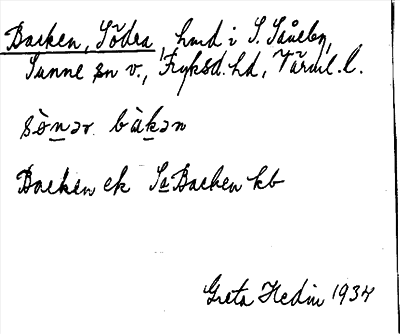 Backen, Södra, hmd i S. Såneby,
Sunne sn v., Fryksd. hd, Värml. l.
sò̱nər bàkən
Backen ek Sa Backen kb
Greta Hedin 1937